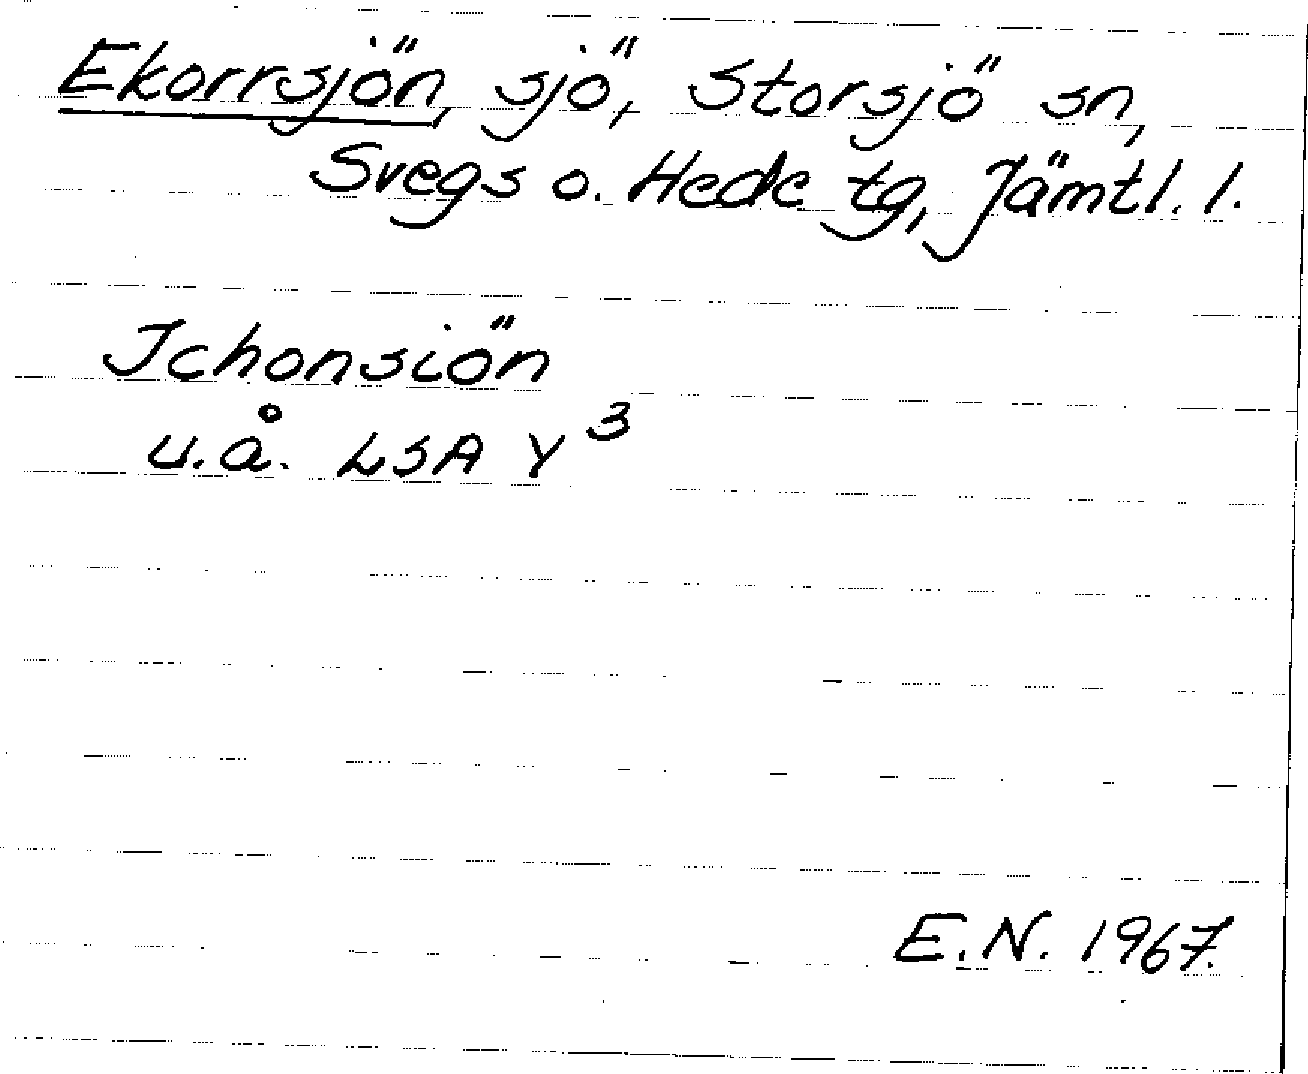 Ekorrsjön, sjö, Storsjö sn,
Svegs o. Hede tg, Jämtl. l.
Ichonsiön
u.å. LSA Y 3
E.N. 1967.